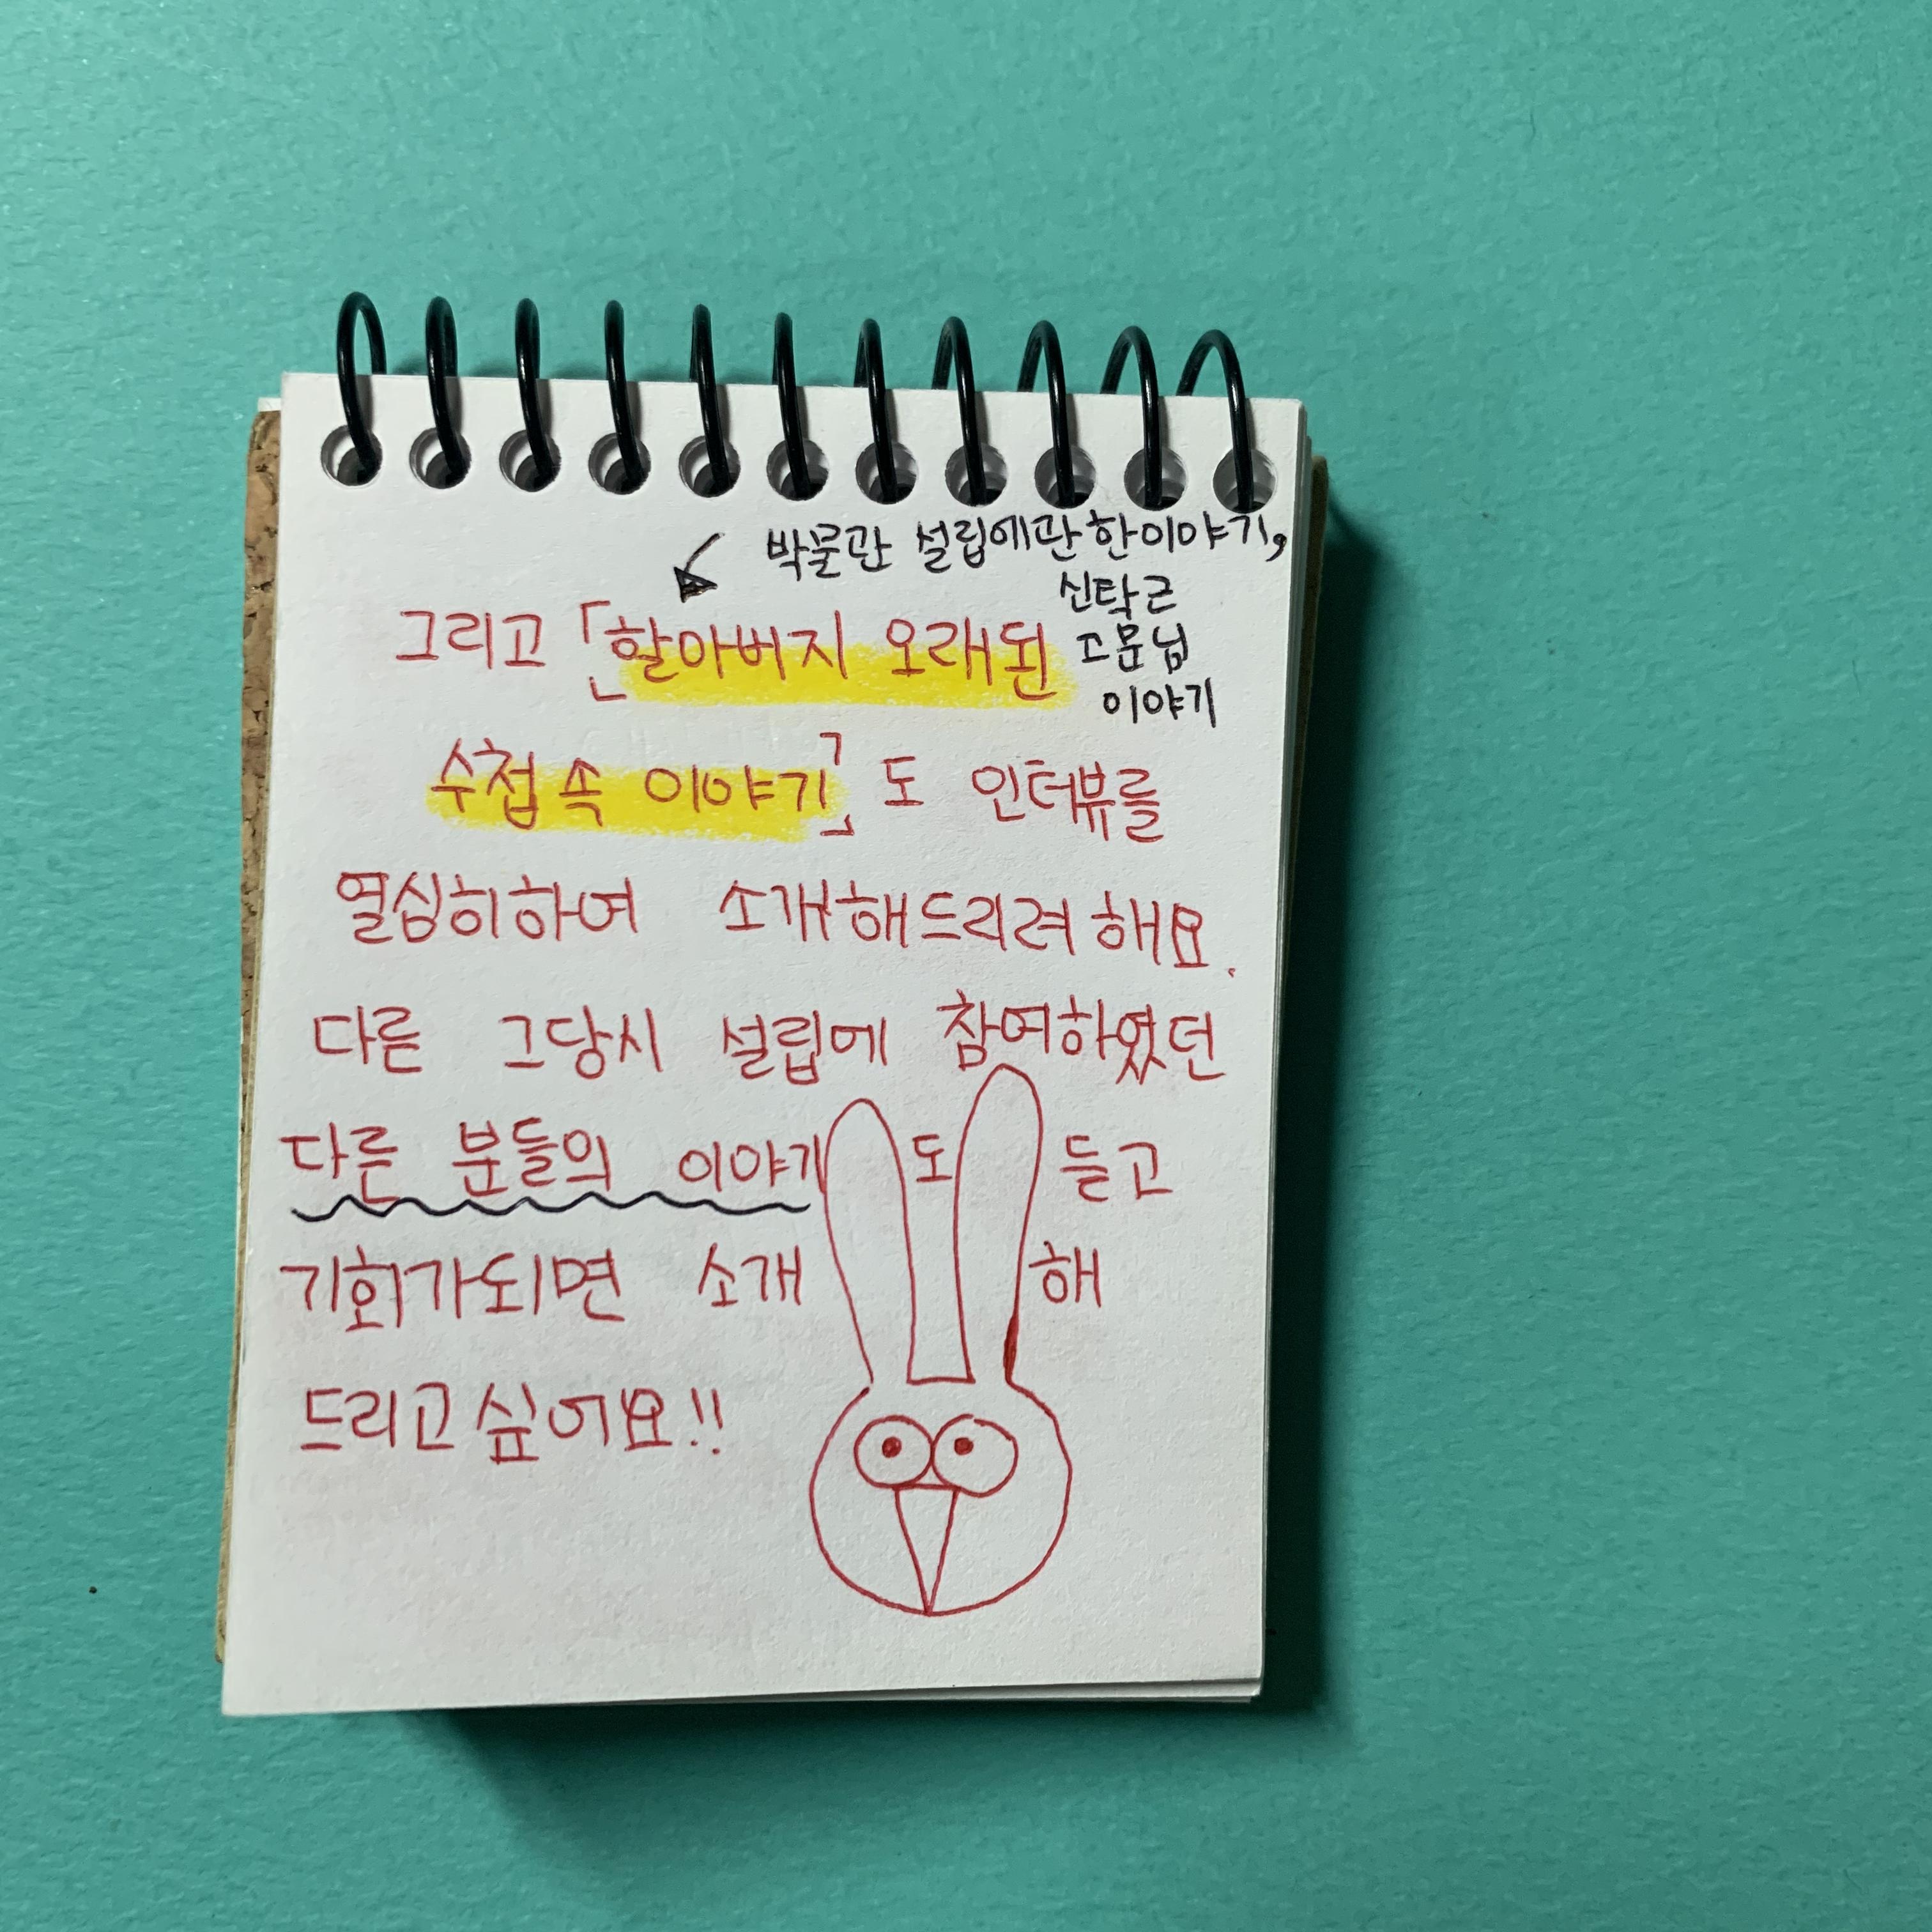 박물관 설립에관한이야기,
신탁근
고문님
이야기
그리고 「할아버지 오래된
수첩속 이야기」도 인터뷰를
열심히하여 소개해드리려해요.
다른 그당시 설립에 참여하였던
다른 분들의 이야기도 듣고
기회가되면 소개해
드리고싶어요!!